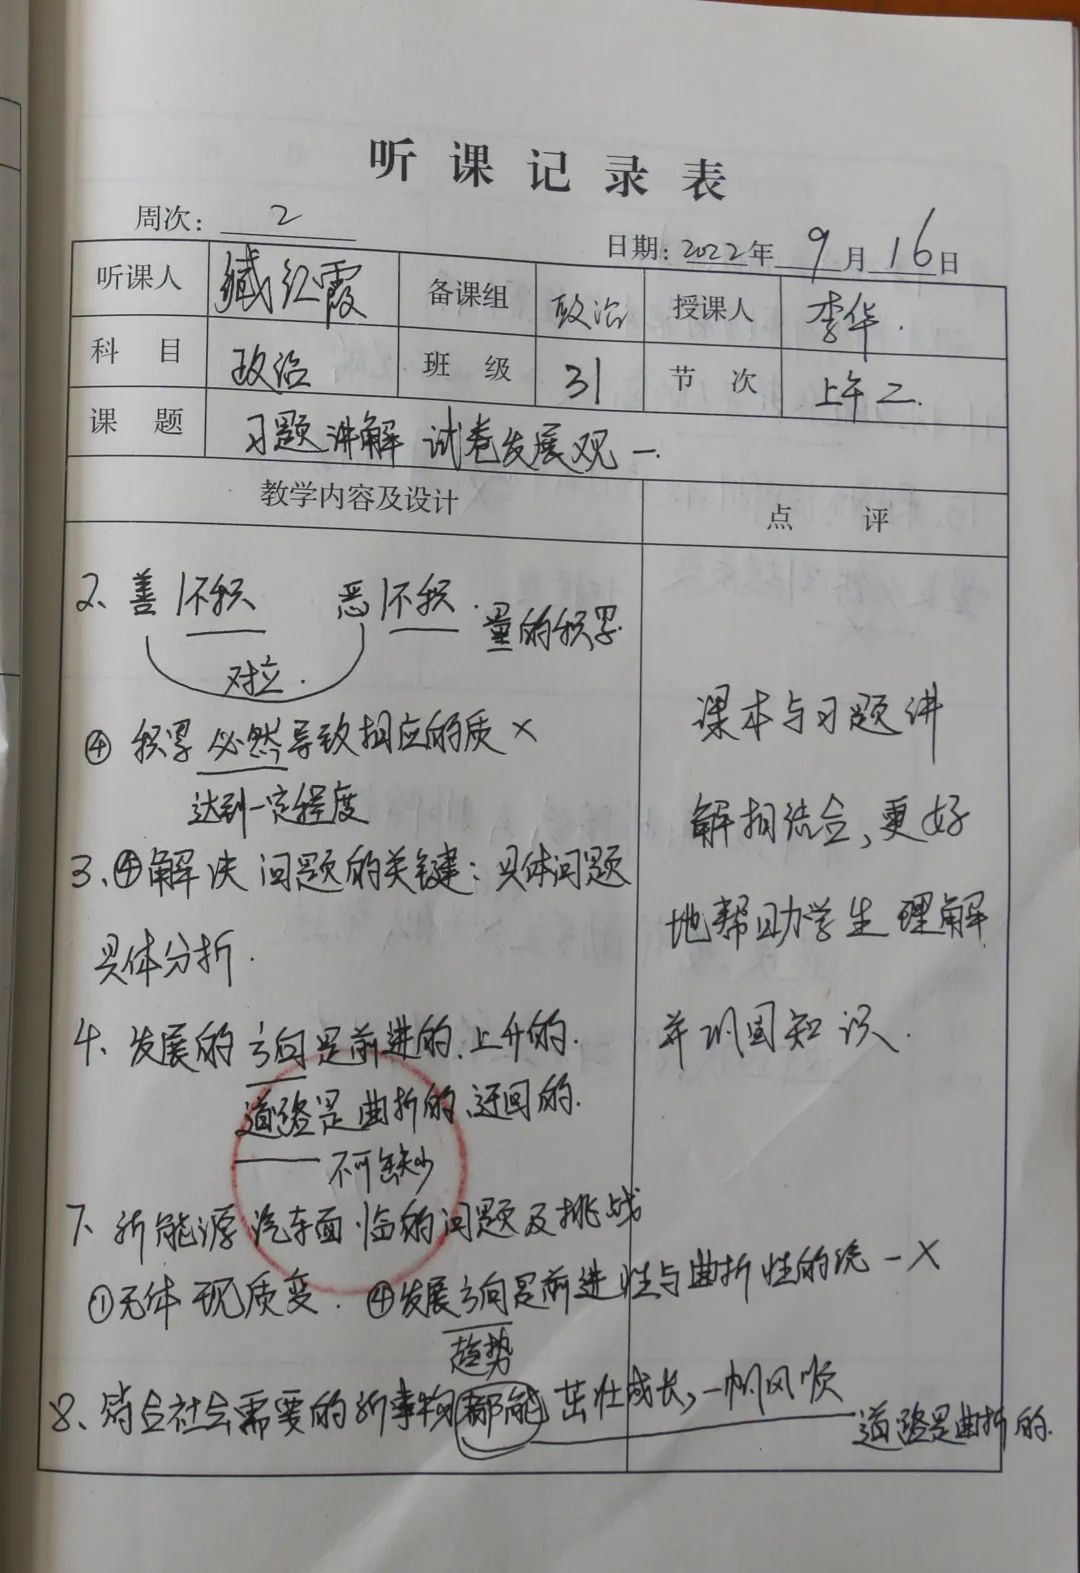 听课记录表
周次: 2
日期: 2022年 9月 16日
听课人 臧红霞 备课组 政治 授课人 李华.
科目 政治 班级 31 节次 上午二.
课题 习题讲解 试卷发展观一.
教学内容及设计 点评
2、善不积 恶不积. 量的积累
对立.
④ 积累必然导致相应的质 ×
达到一定程度
3、④解决问题的关键: 具体问题
具体分析.
4、发展的方向是前进的、上升的.
道路是曲折的、迂回的.
不可缺少
7、新能源汽车面临的问题及挑战
①无体现质变. ④发展方向是前进性与曲折性的统一×
趋势
8、符合社会需要的新事物都能茁壮成长, 一帆风顺
道路是曲折的.
课本与习题讲
解相结合, 更好
地帮助学生理解
并巩固知识.